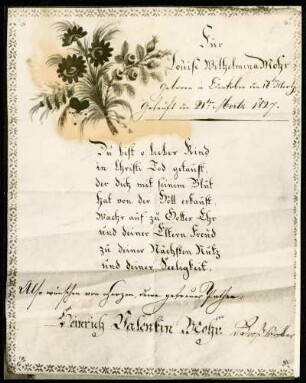 Für
Louise Wilhelmina Mohr
Geboren in den 18ten Mertz
Getauft den 21ten Mertz 1827.
Du bist o lieber Kind
in Christi Tod getauft,
der dich mit seinem Blut
hat von der Höll erkauft.
Wachs auf zu Gottes Ehr
und deiner Eltern Freud
zu deiner Nächsten Nutz
und deiner Seeligkeit.
Also wünschen von Herzen, deine getreuen Pathen.
Heinerich Valentin Mohr